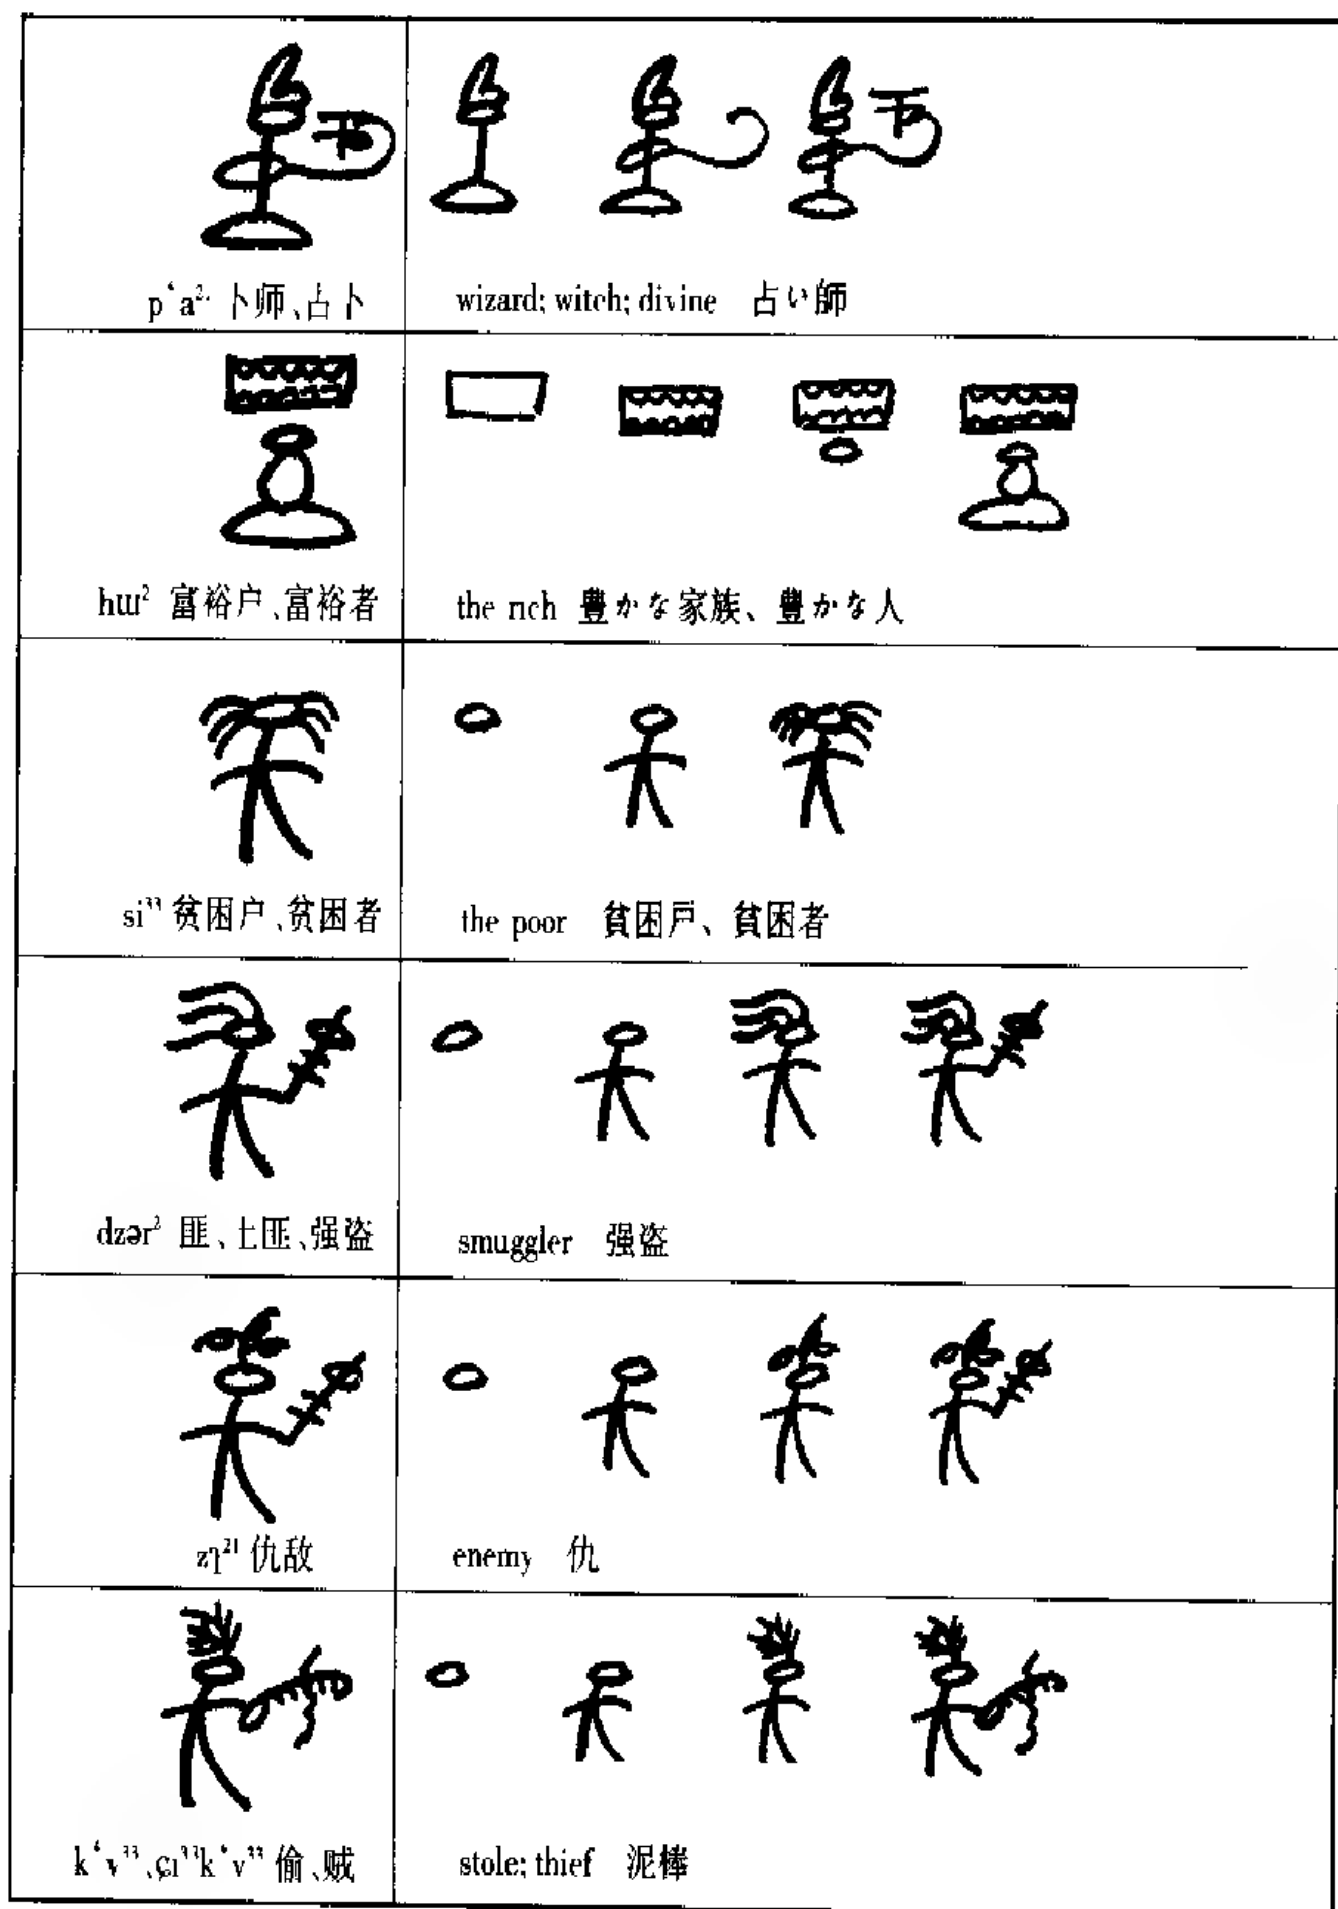 p‘a²· 卜师、占卜
wizard; witch; divine 占い師
hɯ² 富裕户、富裕者
the rich 豊かな家族、豊かな人
si³³ 贫困户、贫困者
the poor 貧困戸、貧困者
dzər² 匪、土匪、强盗
smuggler 强盗
zʅ²¹ 仇敌
enemy 仇
k‘v³³、ɕɪ³³k‘v³³ 偷、贼
stole; thief 泥棒